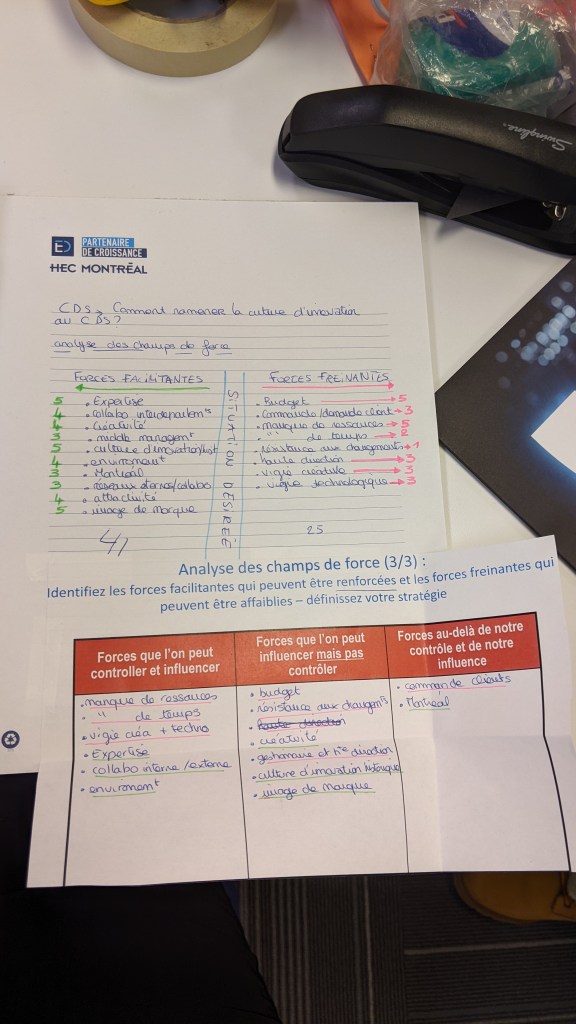 Swingline
PARTENAIRE
DE CROISSANCE
HEC MONTRÉAL
CDS → Comment ramener la culture d'innovation
au CDS?
analyse des champs de force
FORCES FACILITANTES
5 . Expertise
4 . collabo interdépartemts
4 . Créativité
3 . middle managemt
5 . culture d'innovation/hist
4 . environemt
3 . Montréal
3 . réseaux externes/collabo
4 . attractivité
5 . image de marque
41
SITUATION DÉSIRÉE
FORCES FREINANTES
. Budget → 5
. Commande/demande client → 3
. manque de ressources → 5
. " de temps → 2
. résistance aux changements → 1
. haute direction → 3
. vigie créative → 3
. vigie technologique → 3
25
Analyse des champs de force (3/3) :
Identifiez les forces facilitantes qui peuvent être renforcées et les forces freinantes qui
peuvent être affaiblies – définissez votre stratégie
Forces que l'on peut
controller et influencer
. manque de ressources
. " de temps
. vigie créa + techno
. Expertise
. collabo interne/externe
. environemt
Forces que l'on peut
influencer mais pas
contrôler
. budget
. résistance aux changemts
. haute direction
. créativité
. gestionnaire et hte direction
. culture d'innovation historique
. image de marque
Forces au-delà de notre
contrôle et de notre
influence
. commande clients
. Montréal